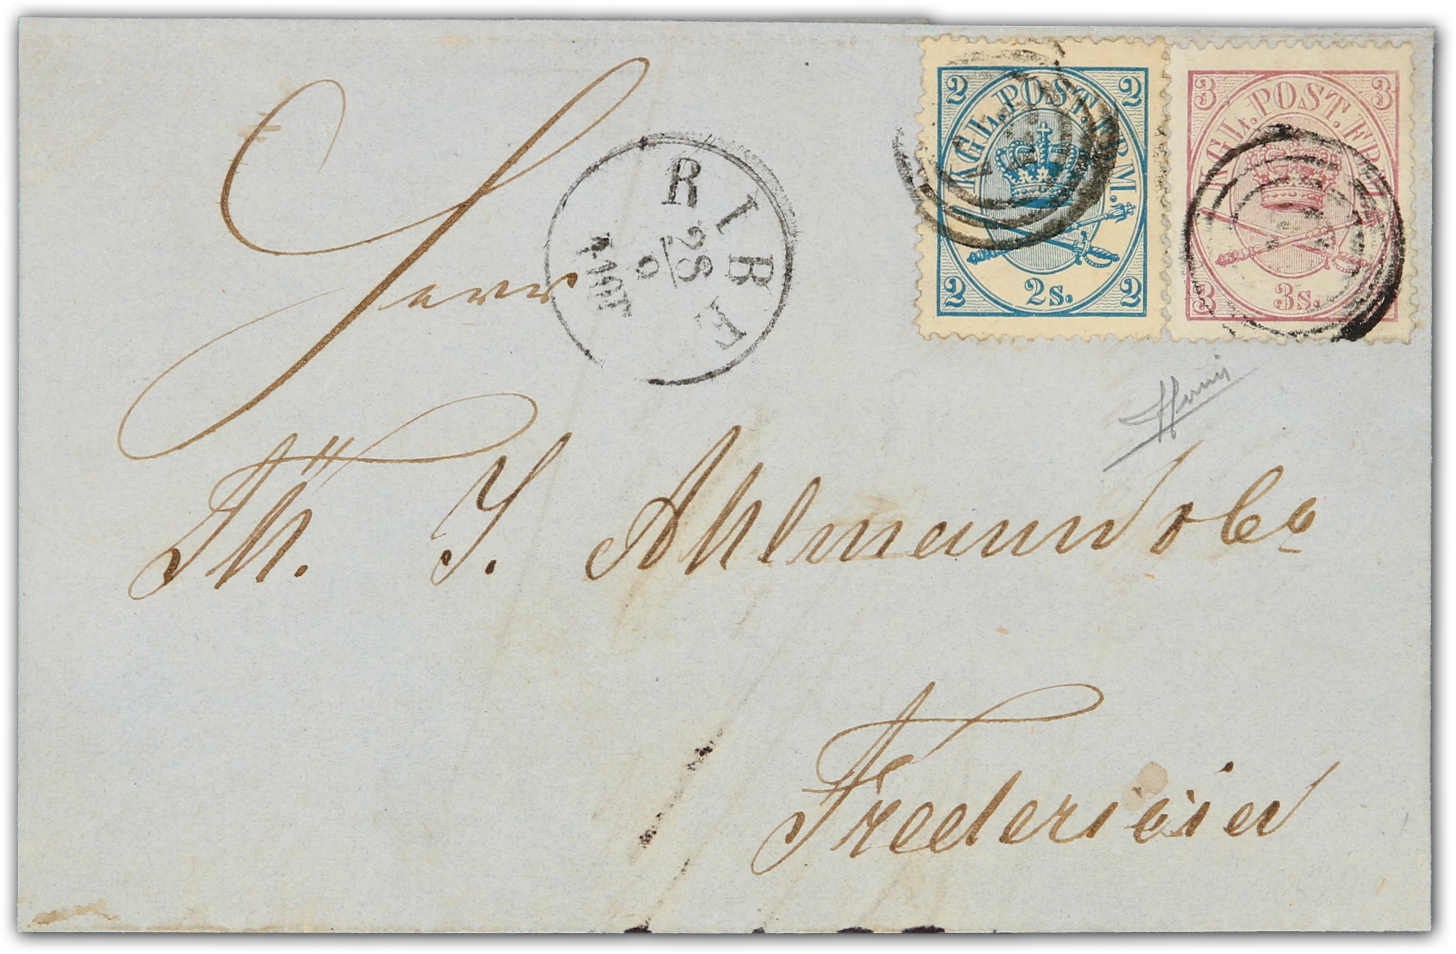 2 2
KGL. POST. FRM.
2 2s. 2
3 3
KGL. POST. FRM.
3 3s. 3
RIBE
28
9
Herr
Th. J. Ahlmann & Co
Fredericia